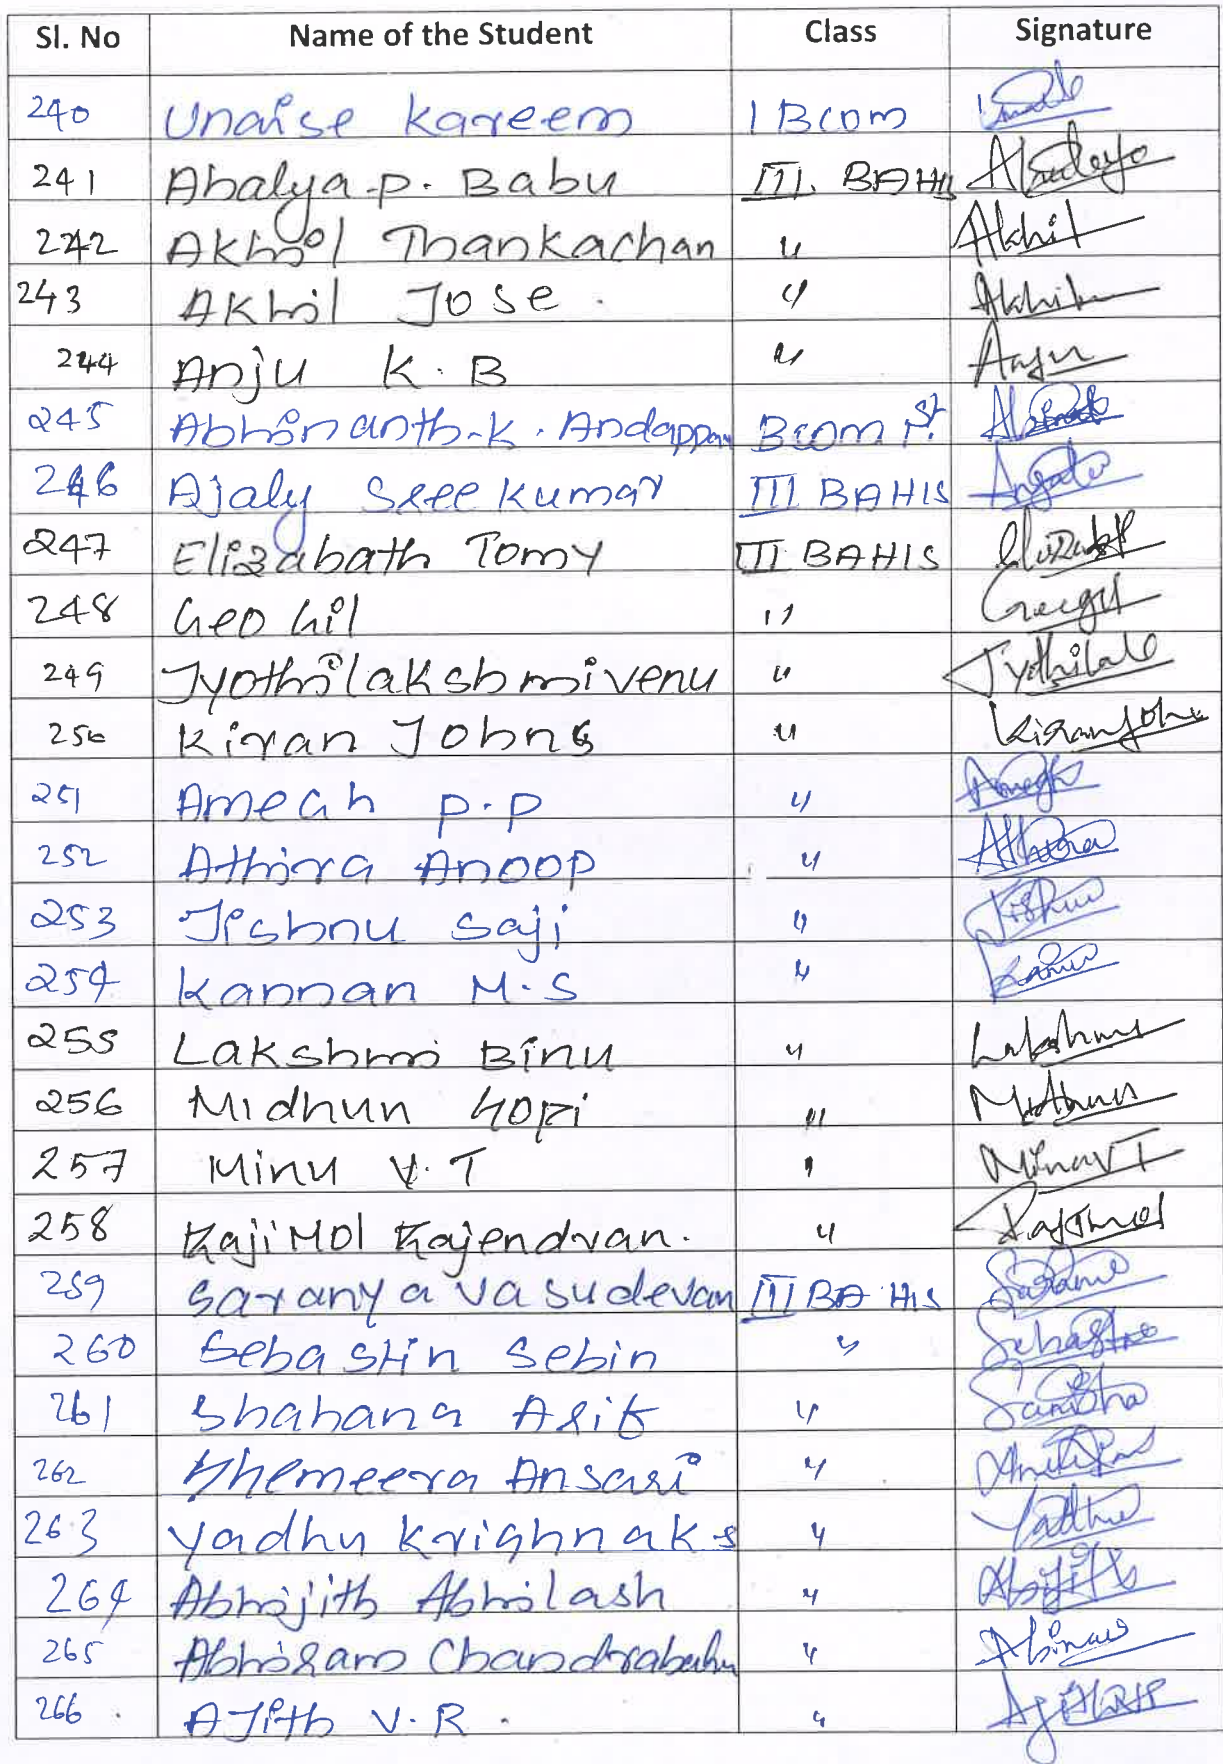 Sl. No Name of the Student Class Signature
240 Unaise Kareem I BCom
241 Ahalya.P. Babu III. BAHIS
242 Akhil Thankachan " Akhil
243 Akhil Jose. " Akhil
244 Anju K.B " Anju
245 Abhinanth.K. Andappan BCom Ist.
246 Ajaly Sree Kumar III BAHIS
247 Elizabath Tomy III BAHIS
248 Geo Gil "
249 Jyothilakshmivenu "
250 Kiran Johns " Kiran John
251 Amegh P.P "
252 Athira Anoop " Athira
253 Jishnu Saji " Jishnu
254 Kannan M.S "
255 Lakshmi Binu "
256 Midhun Gopi " Midhun
257 Minu V.T "
258 RajiMol Rajendran. "
259 Saranya Vasudevan III BA His
260 Sebastin Sebin "
261 Shahana Asif "
262 Shemeera Ansari "
263 Yadhu Krishna K S "
264 Abhijith Abhilash "
265 Abhiram Chandrababu "
266 . AJith V.R. "